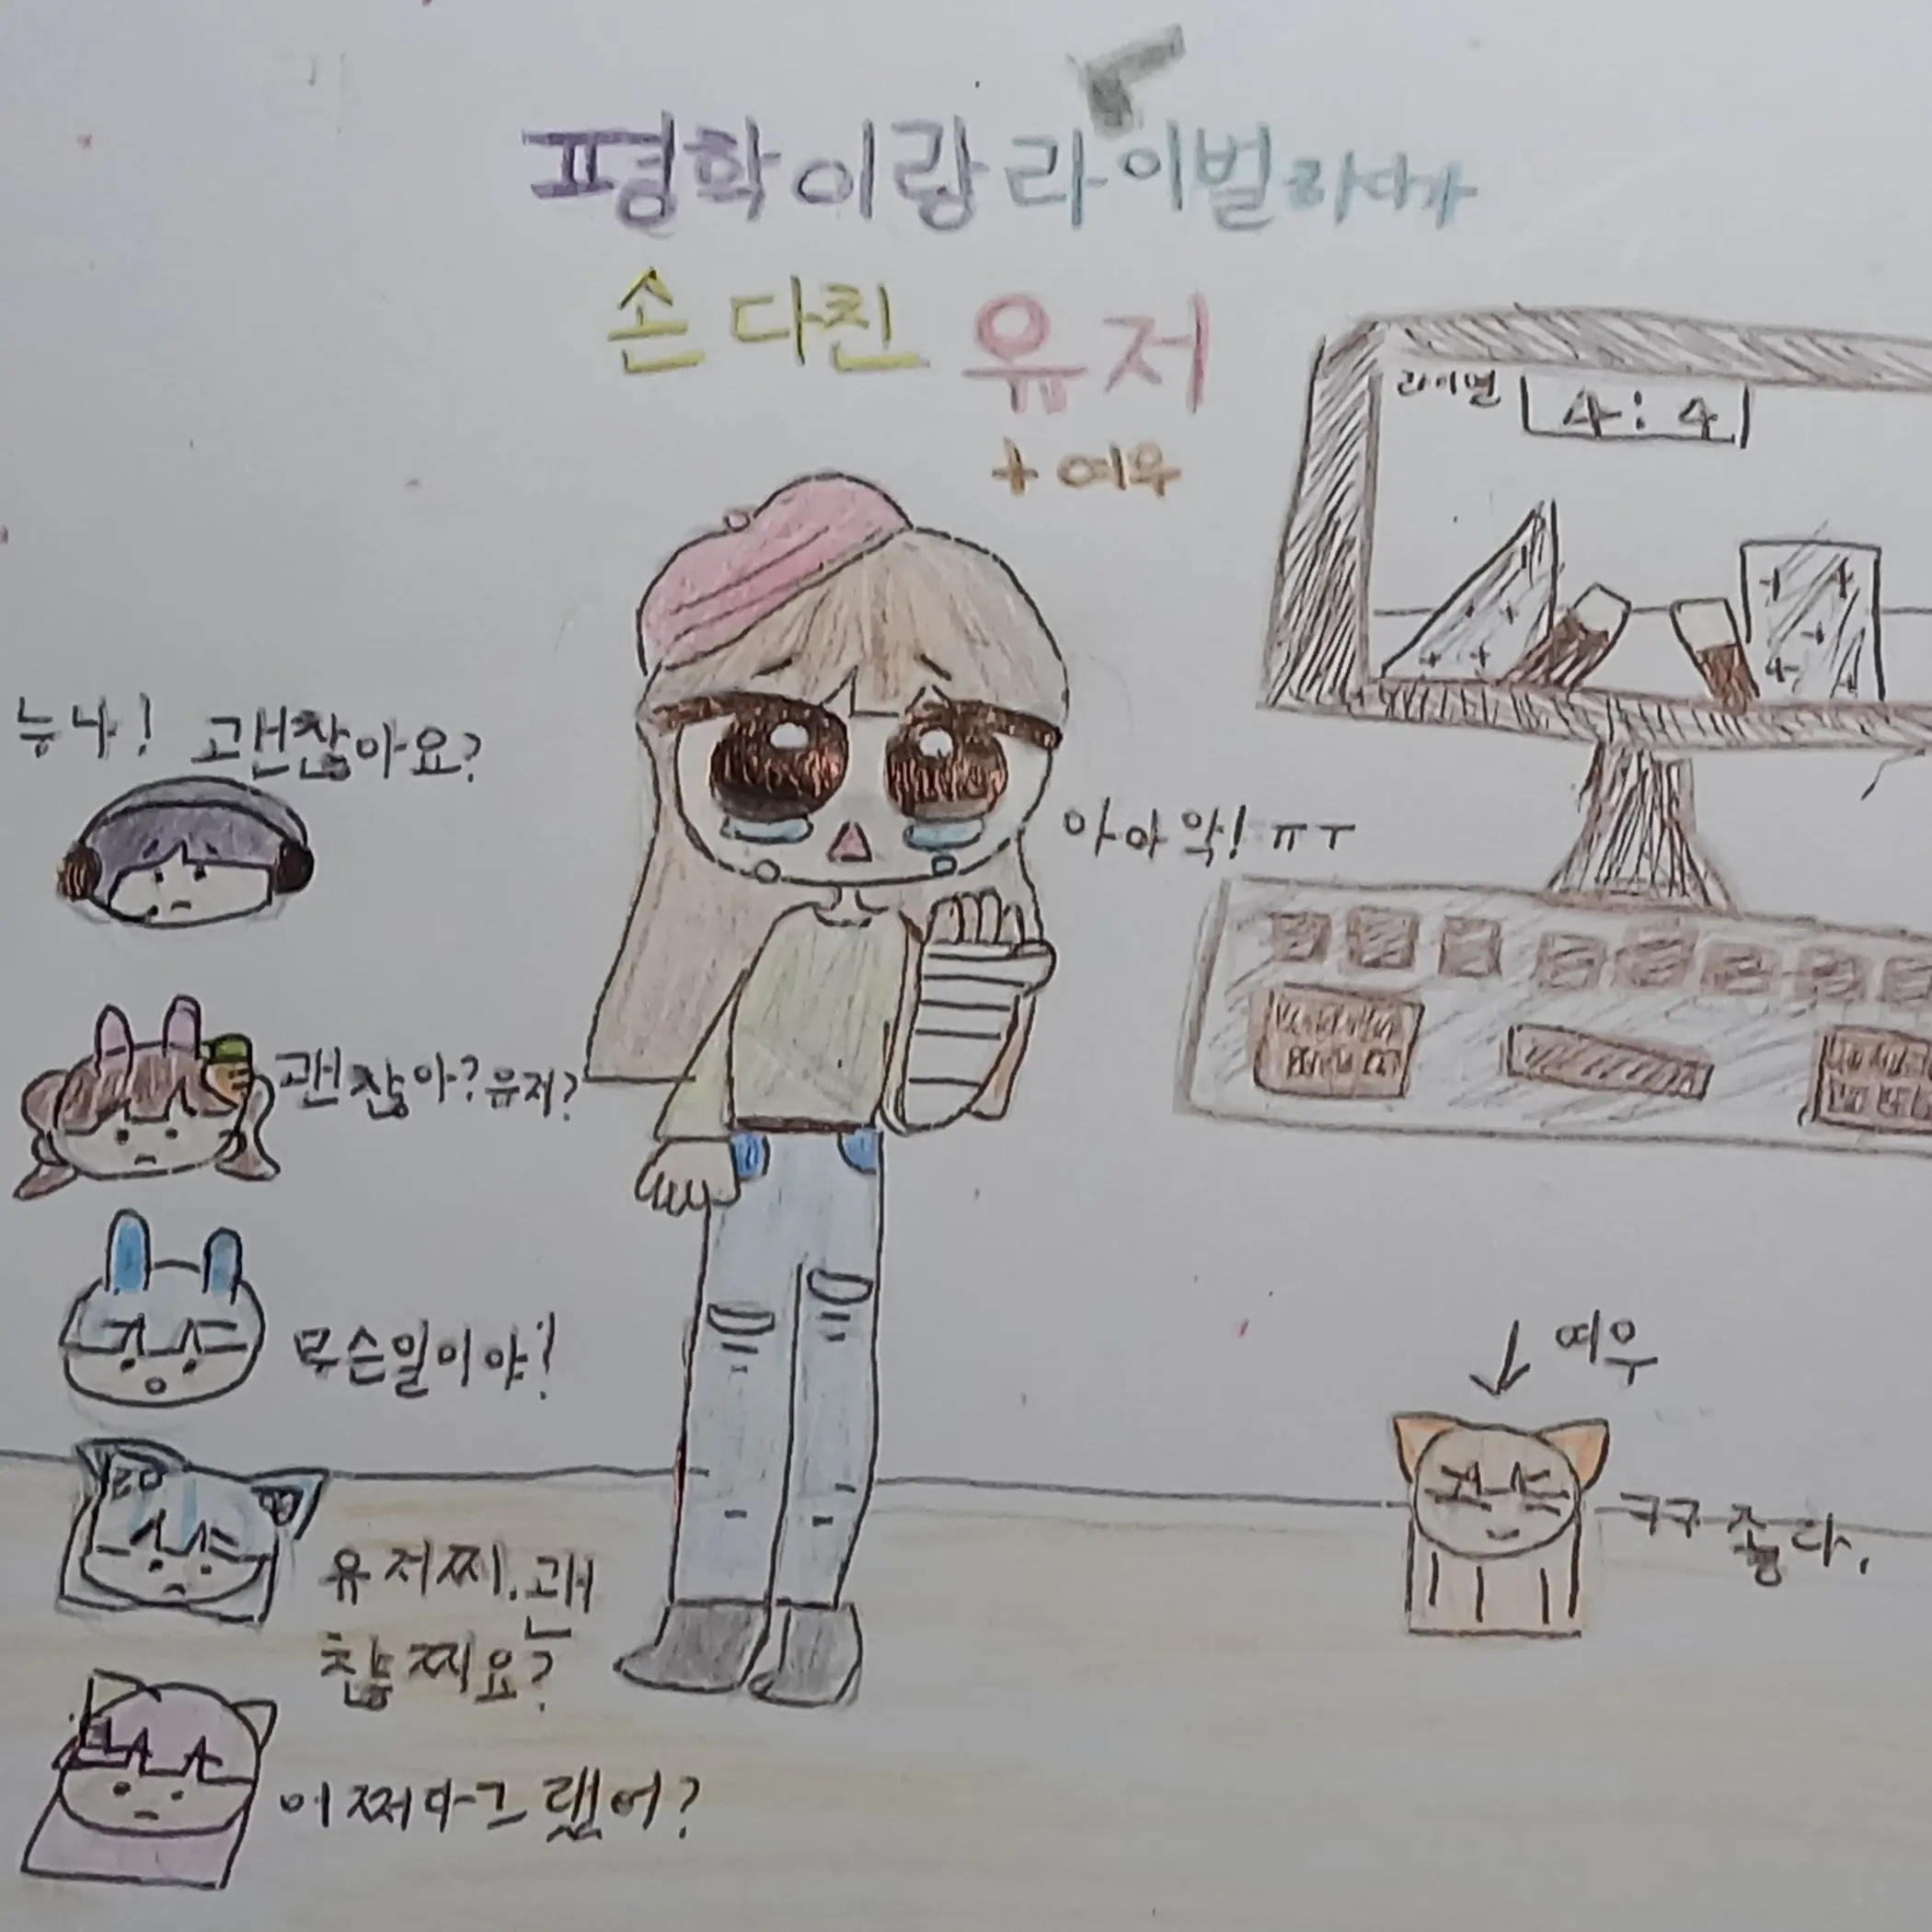 평학이랑 라이벌하다가
손 다친 유저
+ 여우
라이벌 4:4
누나! 괜찮아요?
아아악! ㅠㅜ
괜찮아? 유저?
무슨일이야!
여우
유저찌. 괜
찮찌요?
ㅋㅋ 좋다.
어쩌다그랬어?